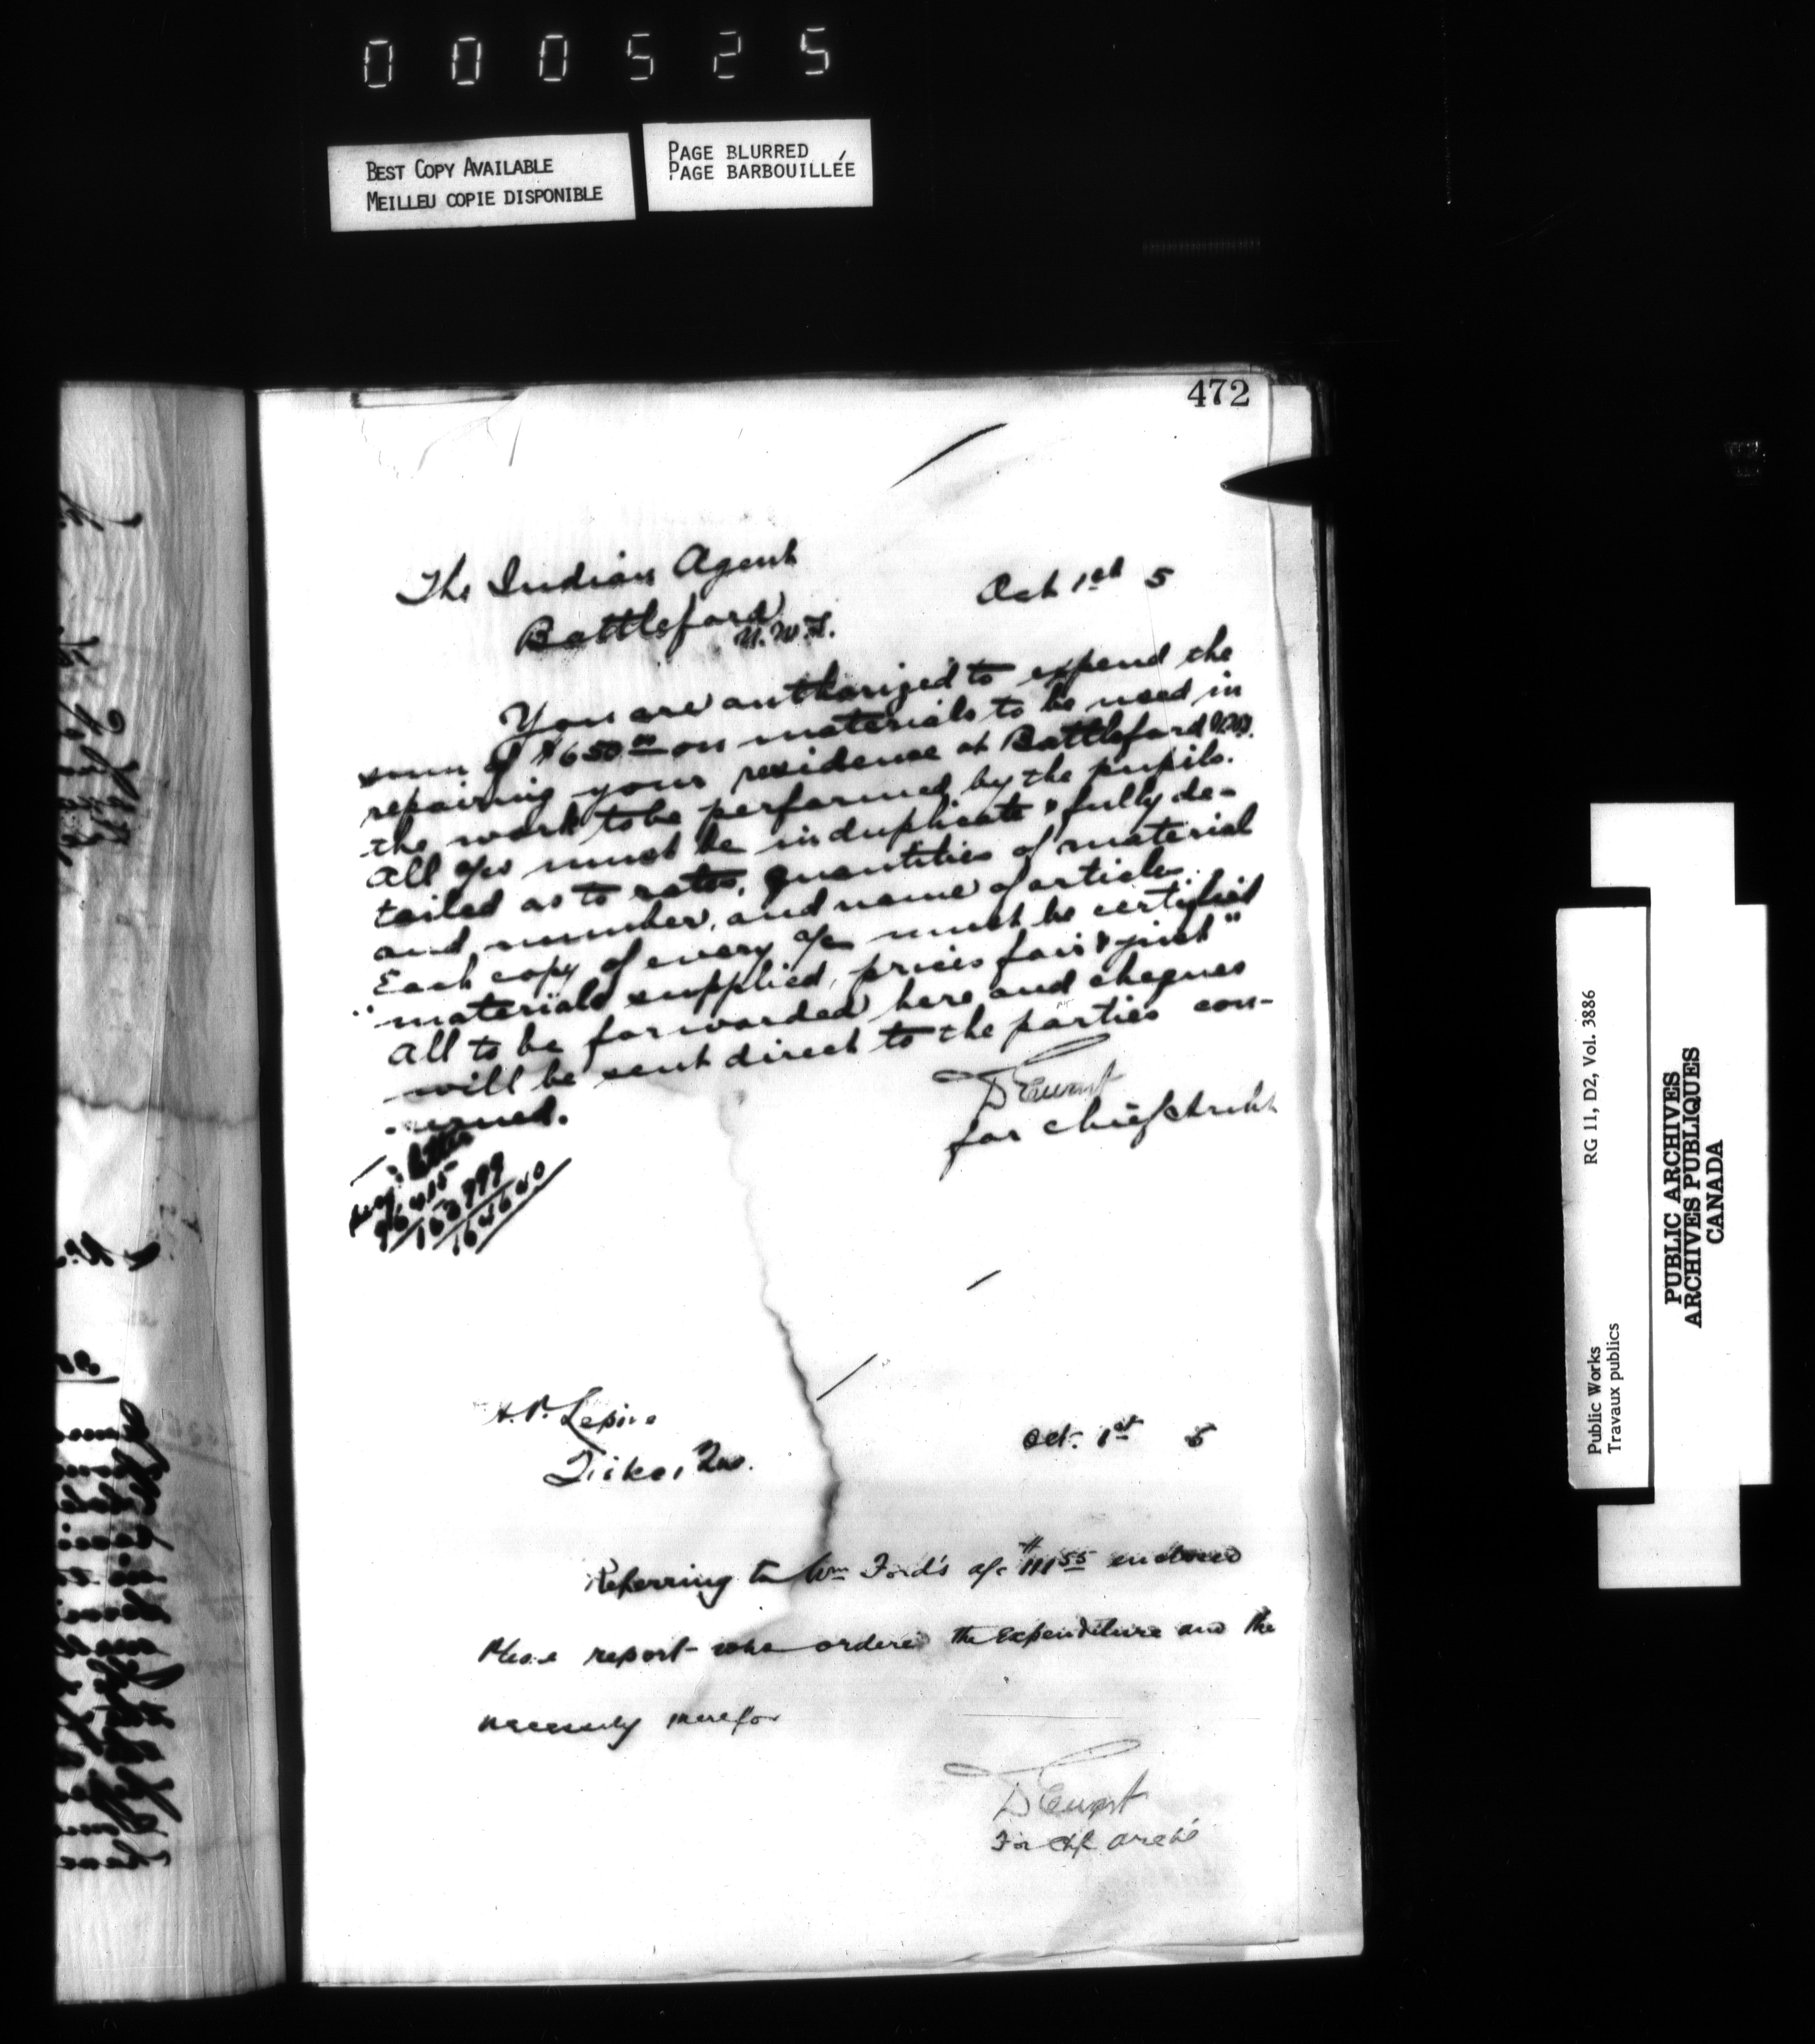 000525
BEST COPY AVAILABLE
MEILLEU COPIE DISPONIBLE
PAGE BLURRED
PAGE BARBOUILLÉE
472
The Indian Agent
Oct 1st 5
Battleford
N.W.T.
You are authorized to expend the
sum of $650.00 on materials to be used in
repairing your residence at Battleford
the work to be performed by the pupils.
All a/cs must be in duplicate & fully de-
tailed as to rates, quantities of material
and number, and name of articles.
Each copy of every a/c must be certified
"materials supplied, prices fair & just"
All to be forwarded here and cheques
will be sent direct to the parties con-
cerned.
D Ewart
for chief archt
163999
164640
A.P. Lepine
Oct. 1st 5
Que.
Referring to Wm Ford's a/c $111 55 enclosed
Please report who ordered the expenditure and the
necessity therefor
D Ewart
For Chf archt
Public Works
Travaux publics
RG 11, D2, Vol. 3886
PUBLIC ARCHIVES
ARCHIVES PUBLIQUES
CANADA